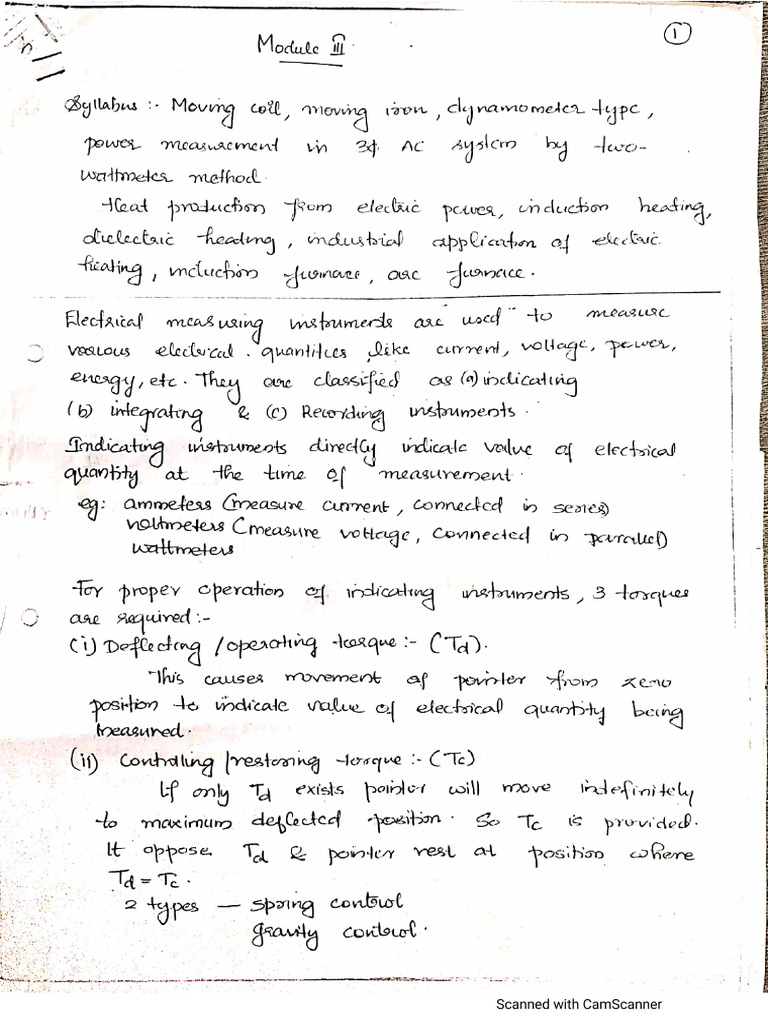 1
Module III
Syllabus :- Moving coil, moving iron, dynamometer type,
power measurement in 3ϕ AC system by two-
wattmeter method.
Heat production from electric power, induction heating,
dielectric heating, industrial application of electric
heating, induction furnace, arc furnace.
Electrical measuring instruments are used to measure
various electrical quantities like current, voltage, power,
energy, etc. They are classified as (a) indicating
(b) integrating & (c) Recording instruments.
Indicating instruments directly indicate value of electrical
quantity at the time of measurement.
eg: ammeters (measure current, connected in series)
voltmeters (measure voltage, connected in parallel)
wattmeters
For proper operation of indicating instruments, 3 torques
are required :-
(i) Deflecting / operating torque :- (Td).
This causes movement of pointer from zero
position to indicate value of electrical quantity being
measured.
(ii) Controlling / restoring torque :- (Tc)
If only Td exists pointer will move indefinitely
to maximum deflected position. So Tc is provided.
It oppose Td & pointer rest at position where
Td = Tc.
2 types — spring control
gravity control.
Scanned with CamScanner